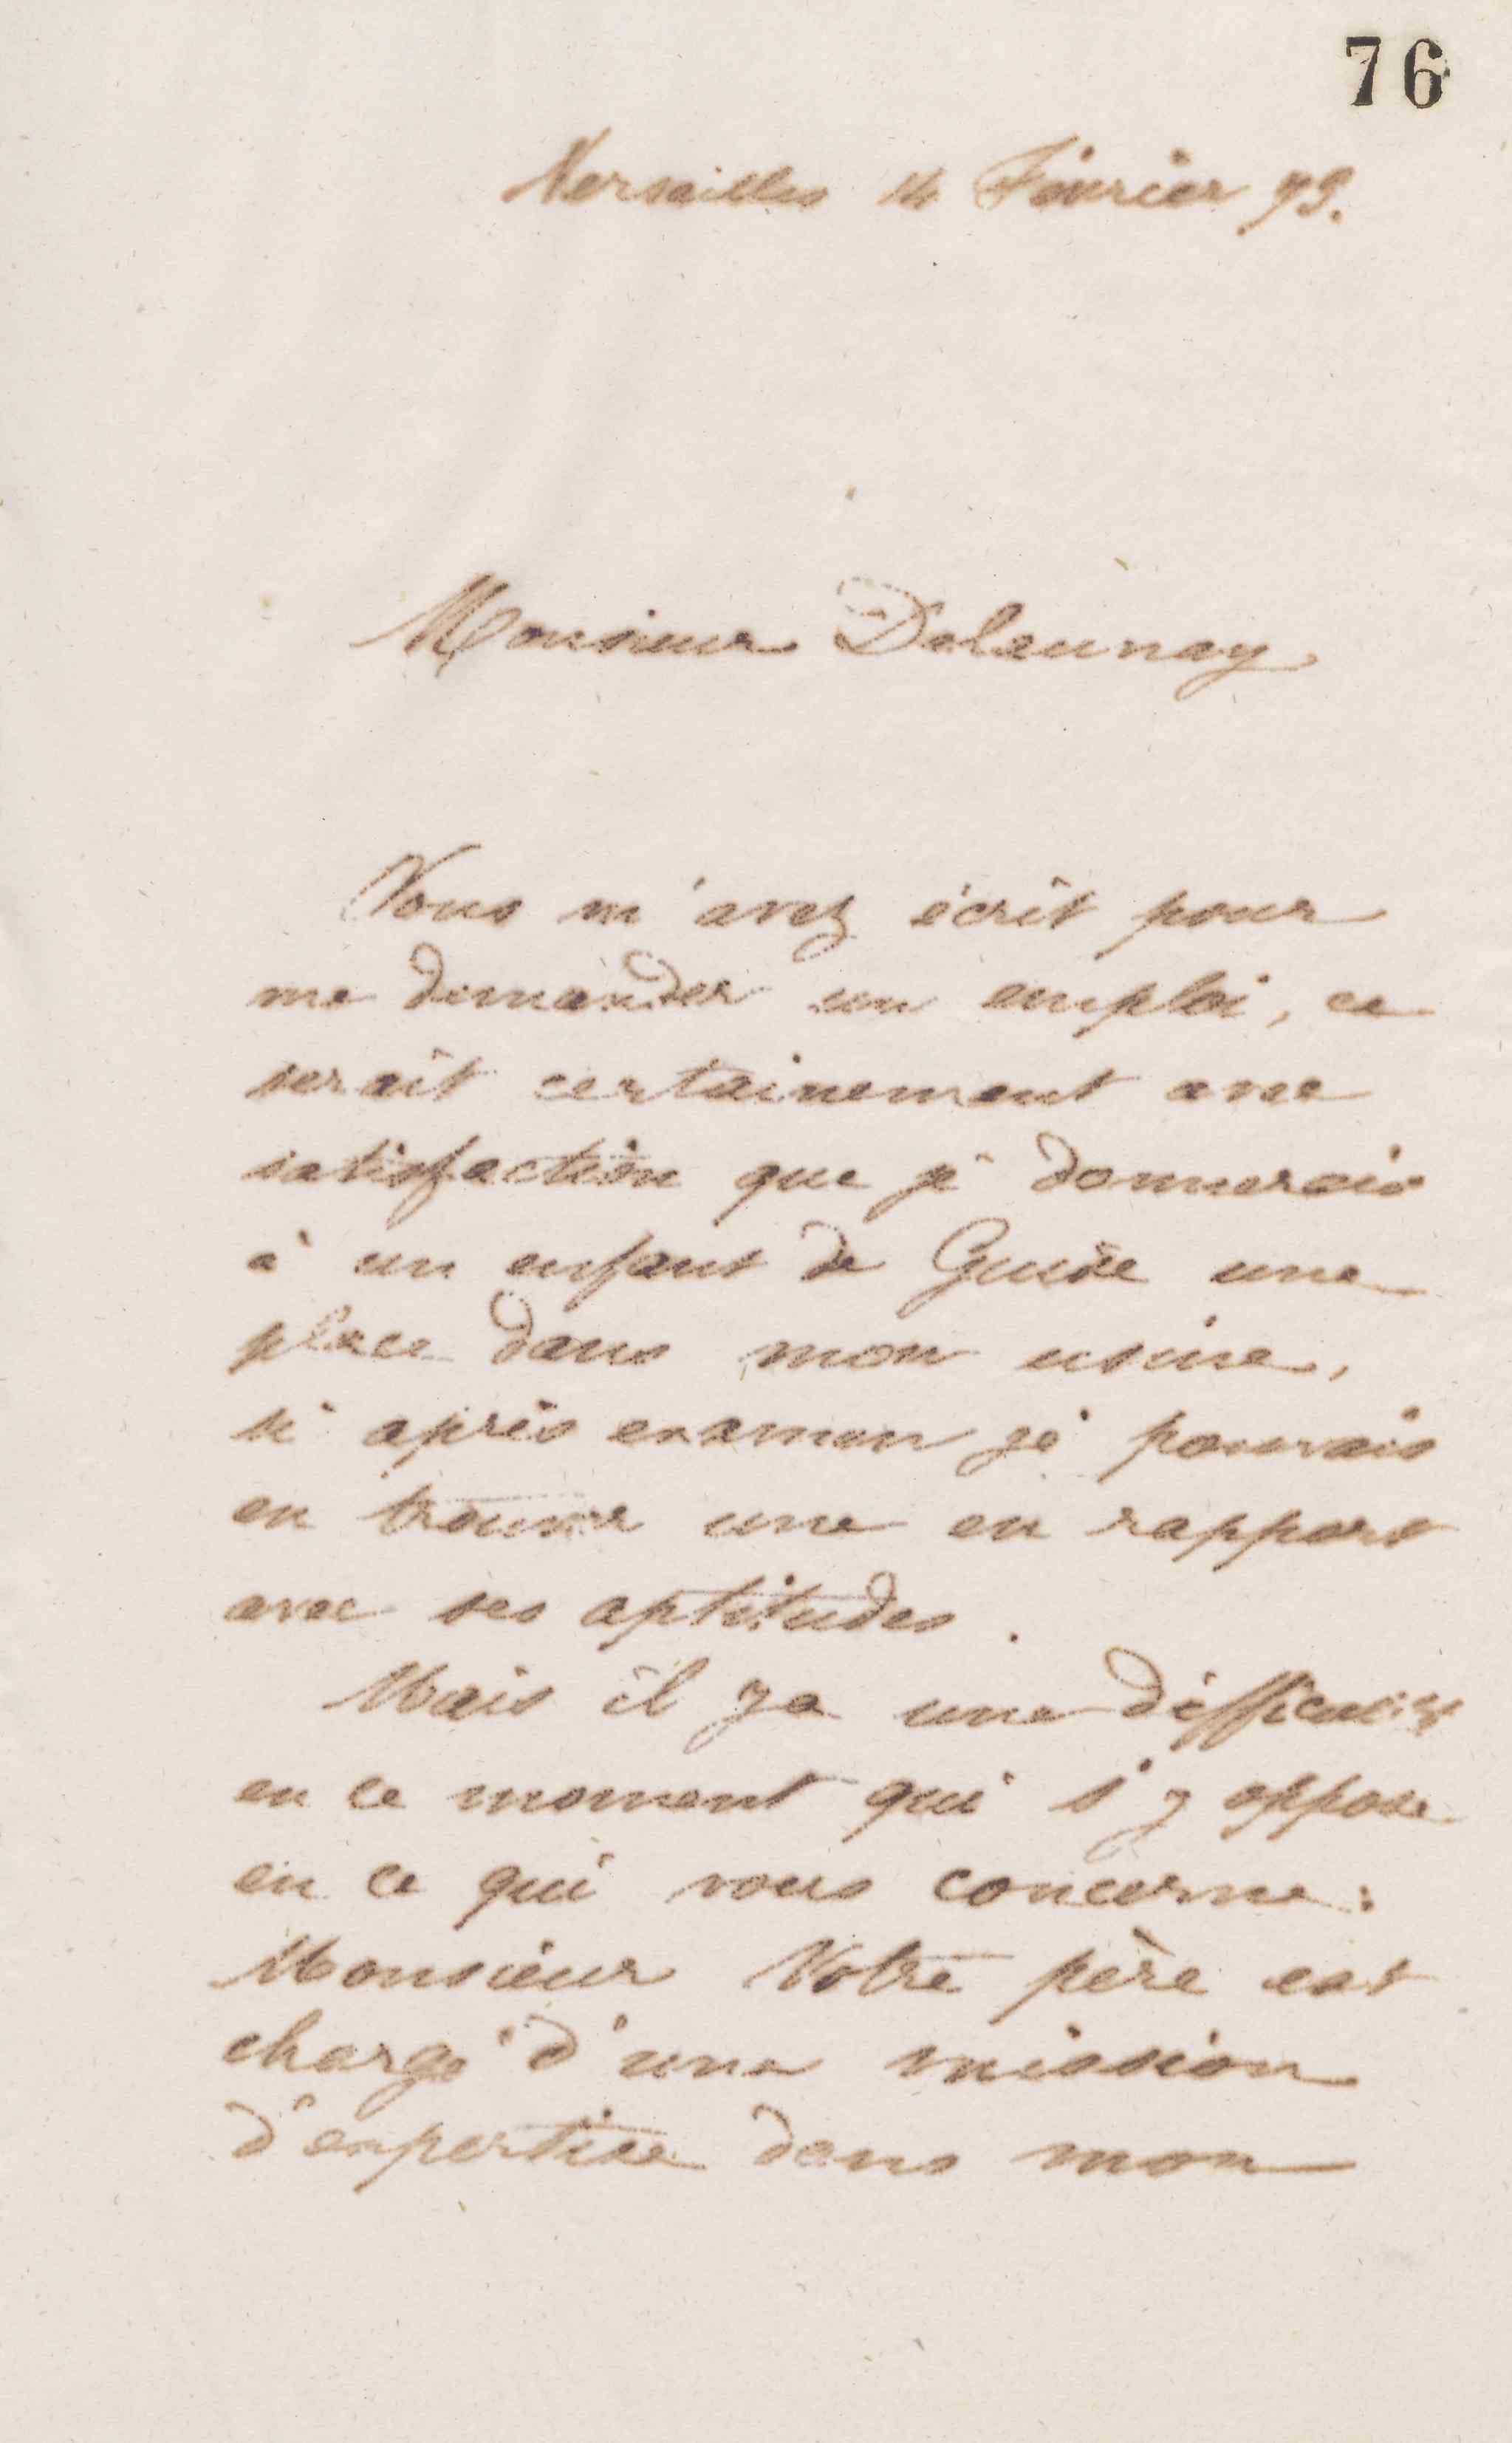 76
Versailles 14 Février 79.
Monsieur Delaunay
Vous m'avez écrit pour
me demander un emploi, ce
serait certainement avec
satisfaction que je donnerais
à un enfant de Guise une
place dans mon usine,
si après examen je pouvais
en trouver une en rapport
avec ses aptitudes.
Mais il y a une difficulté
en ce moment qui s'y oppose
en ce qui vous concerne:
Monsieur Votre père est
chargé d'une mission
d'expertise dans mon